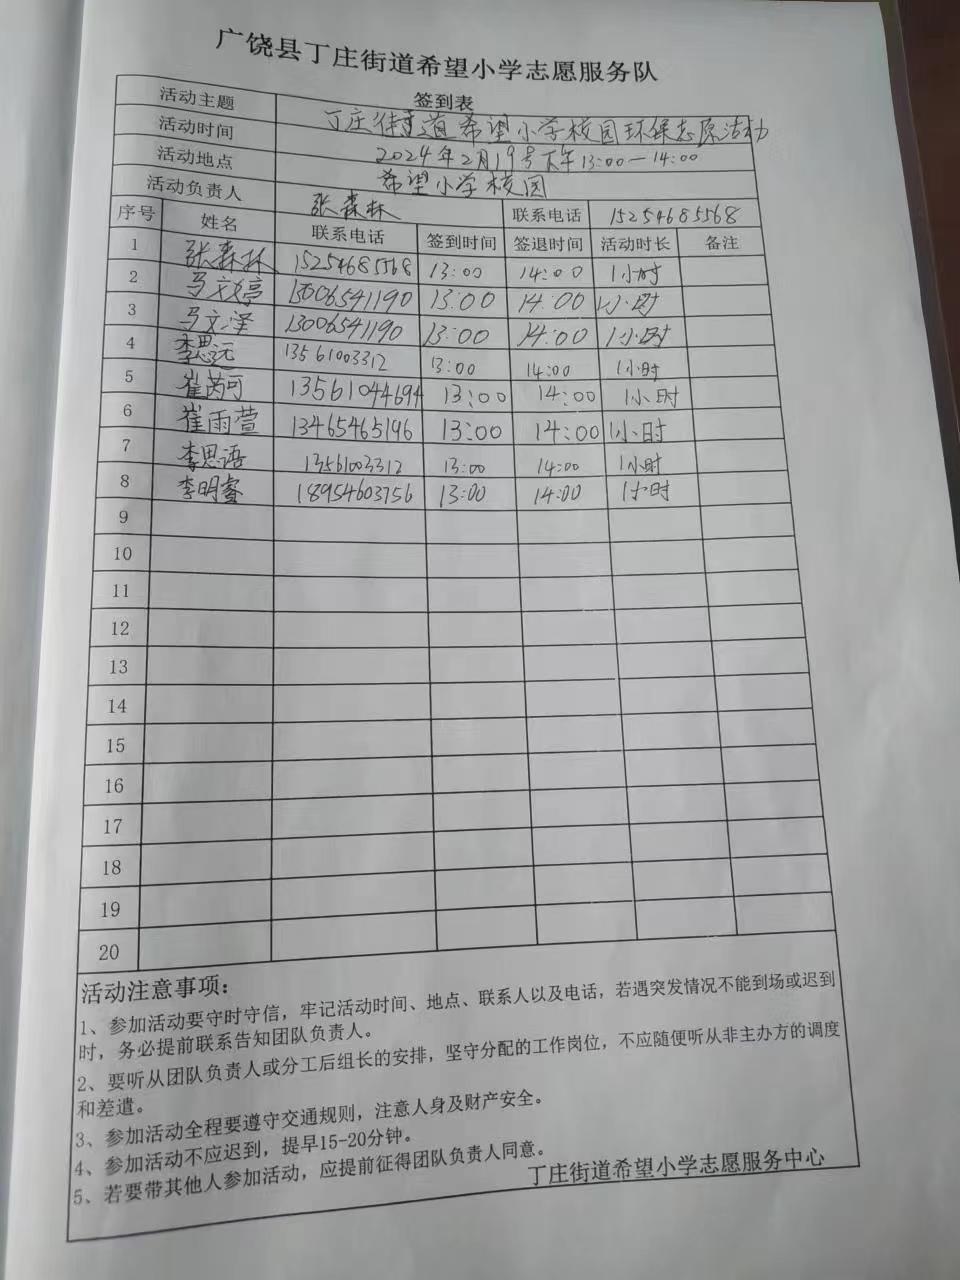 广饶县丁庄街道希望小学志愿服务队
签到表
活动主题 丁庄街道希望小学校园环保志愿活动
活动时间 2024年2月19号下午13:00—14:00
活动地点 希望小学校园
活动负责人 张森林 联系电话 15254685568
序号 姓名 联系电话 签到时间 签退时间 活动时长 备注
1 张森林 15254685568 13:00 14:00 1小时
2 马文婷 13006541190 13:00 14:00 1小时
3 马文泽 13006541190 13:00 14:00 1小时
4 李思远 13561003312 13:00 14:00 1小时
5 崔芮可 13561044694 13:00 14:00 1小时
6 崔雨萱 13465465196 13:00 14:00 1小时
7 李思语 13561003312 13:00 14:00 1小时
8 李明睿 18954603756 13:00 14:00 1小时
9
10
11
12
13
14
15
16
17
18
19
20
活动注意事项：
1、参加活动要守时守信，牢记活动时间、地点、联系人以及电话，若遇突发情况不能到场或迟到
时，务必提前联系告知团队负责人。
2、要听从团队负责人或分工后组长的安排，坚守分配的工作岗位，不应随便听从非主办方的调度
和差遣。
3、参加活动全程要遵守交通规则，注意人身及财产安全。
4、参加活动不应迟到，提早15-20分钟。
5、若要带其他人参加活动，应提前征得团队负责人同意。
丁庄街道希望小学志愿服务中心